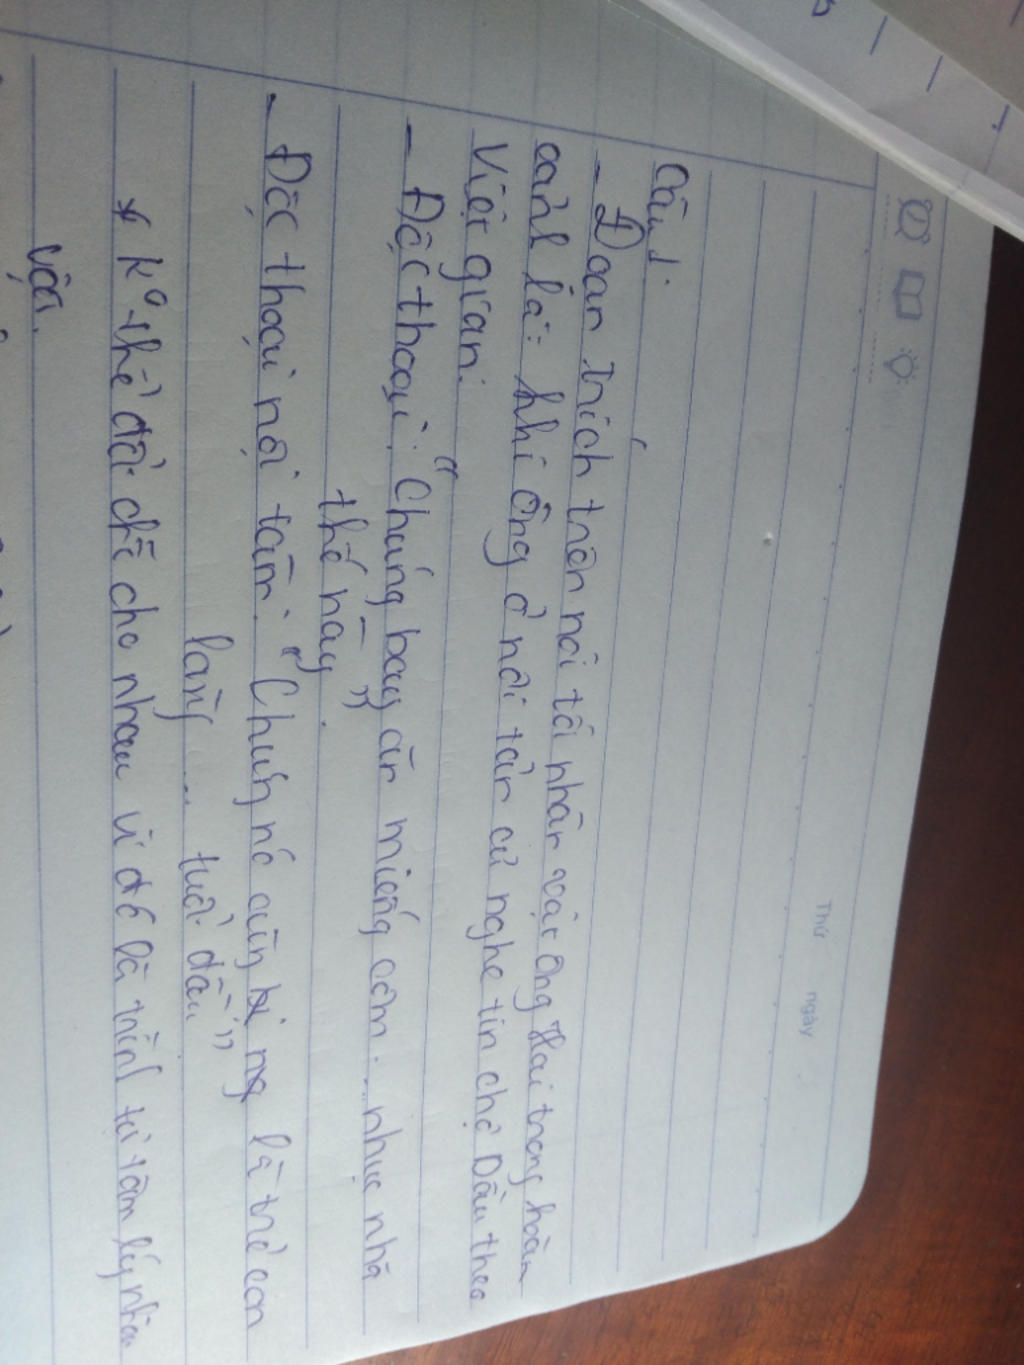 Thứ ngày
Câu 1:
- Đoạn trích trên nói tới nhân vật ông Hai trong hoàn
cảnh là: khi ông ở nơi tản cư nghe tin chợ Dầu theo
Việt gian.
- Độc thoại: "Chúng bay ăn miếng cơm... nhục nhã
thế này".
- Độc thoại nội tâm: "Chúng nó cũng là trẻ con
làng ... tuổi đầu"
* K° thể đổi chỗ cho nhau vì đó là trình tự tâm lý nhân
vật.